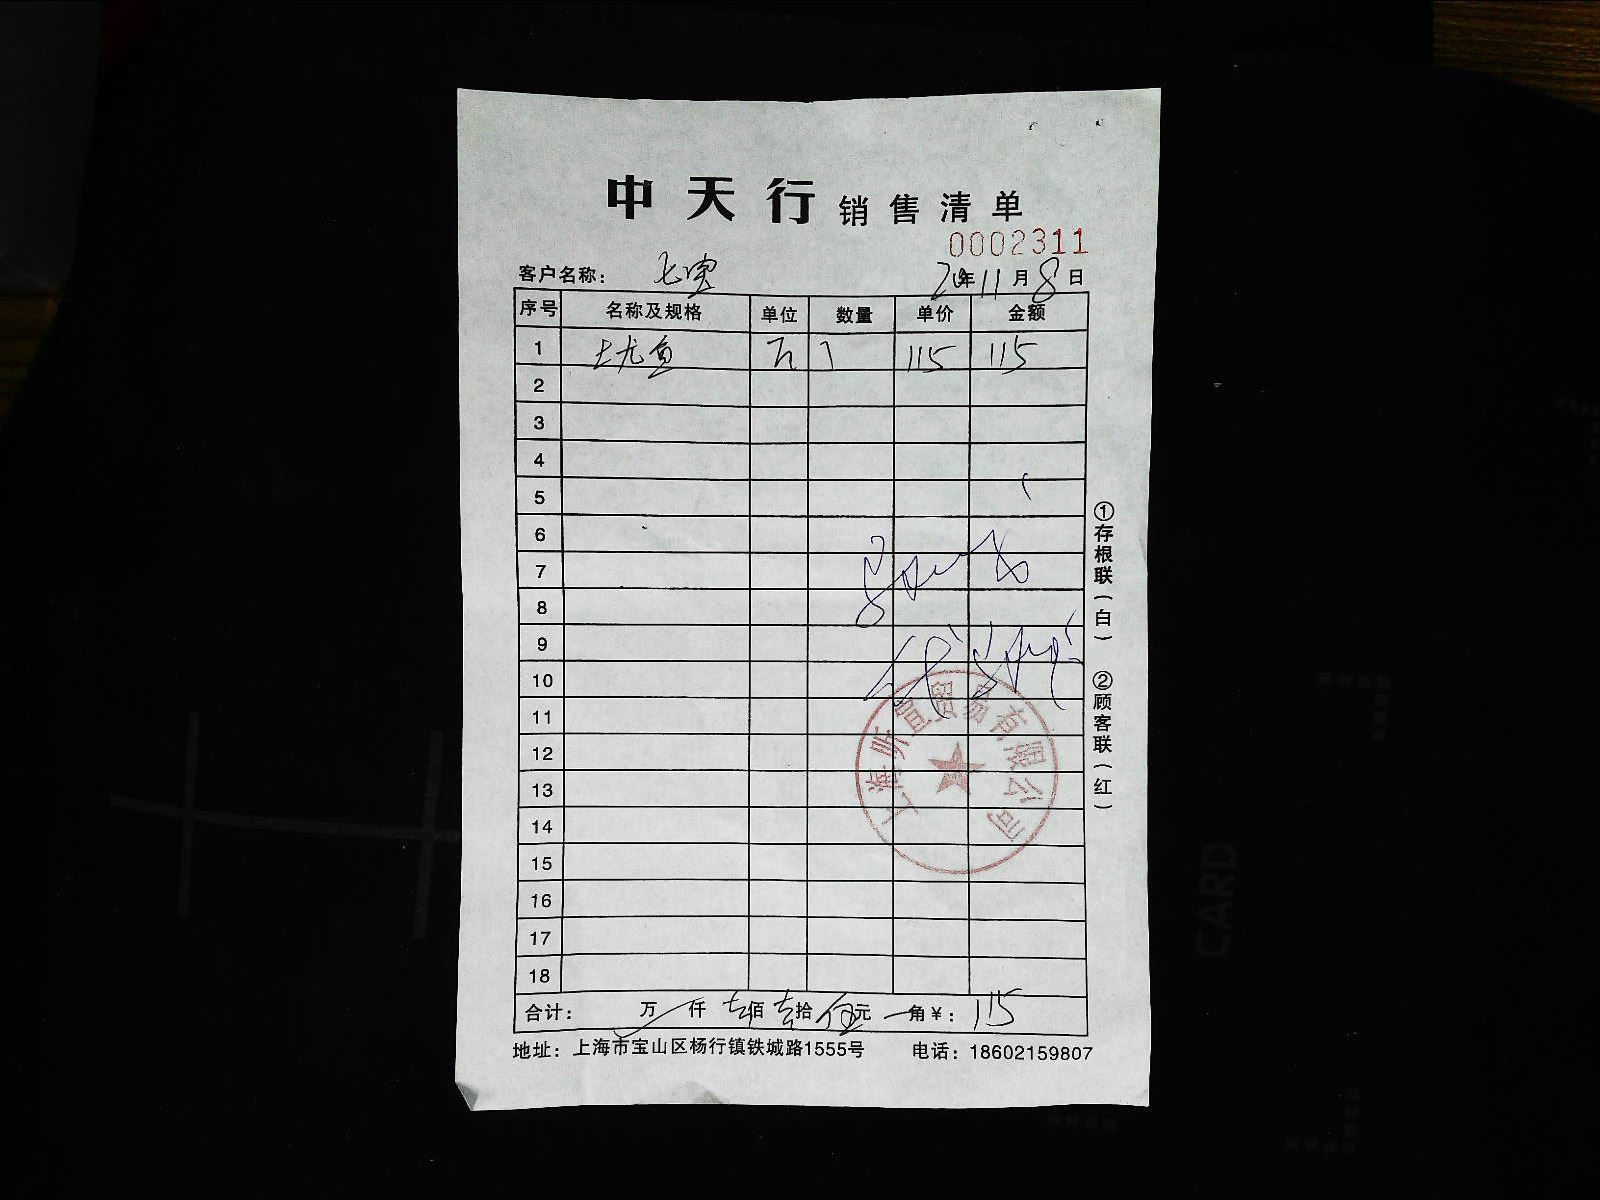 中天行 销售清单
0002311
客户名称： 七宝 20年11月8日
序号 名称及规格 单位 数量 单价 金额
1 土尤鱼 1 115 115
2
3
4
5
6
7
8
9
10
11
12
13
14
15
16
17
18
合计： 万 仟 壹佰 壹拾 伍元 角￥：115
地址：上海市宝山区杨行镇铁城路1555号 电话：18602159807
①存根联（白） ②顾客联（红）
上海昕宣贸易有限公司
CARD